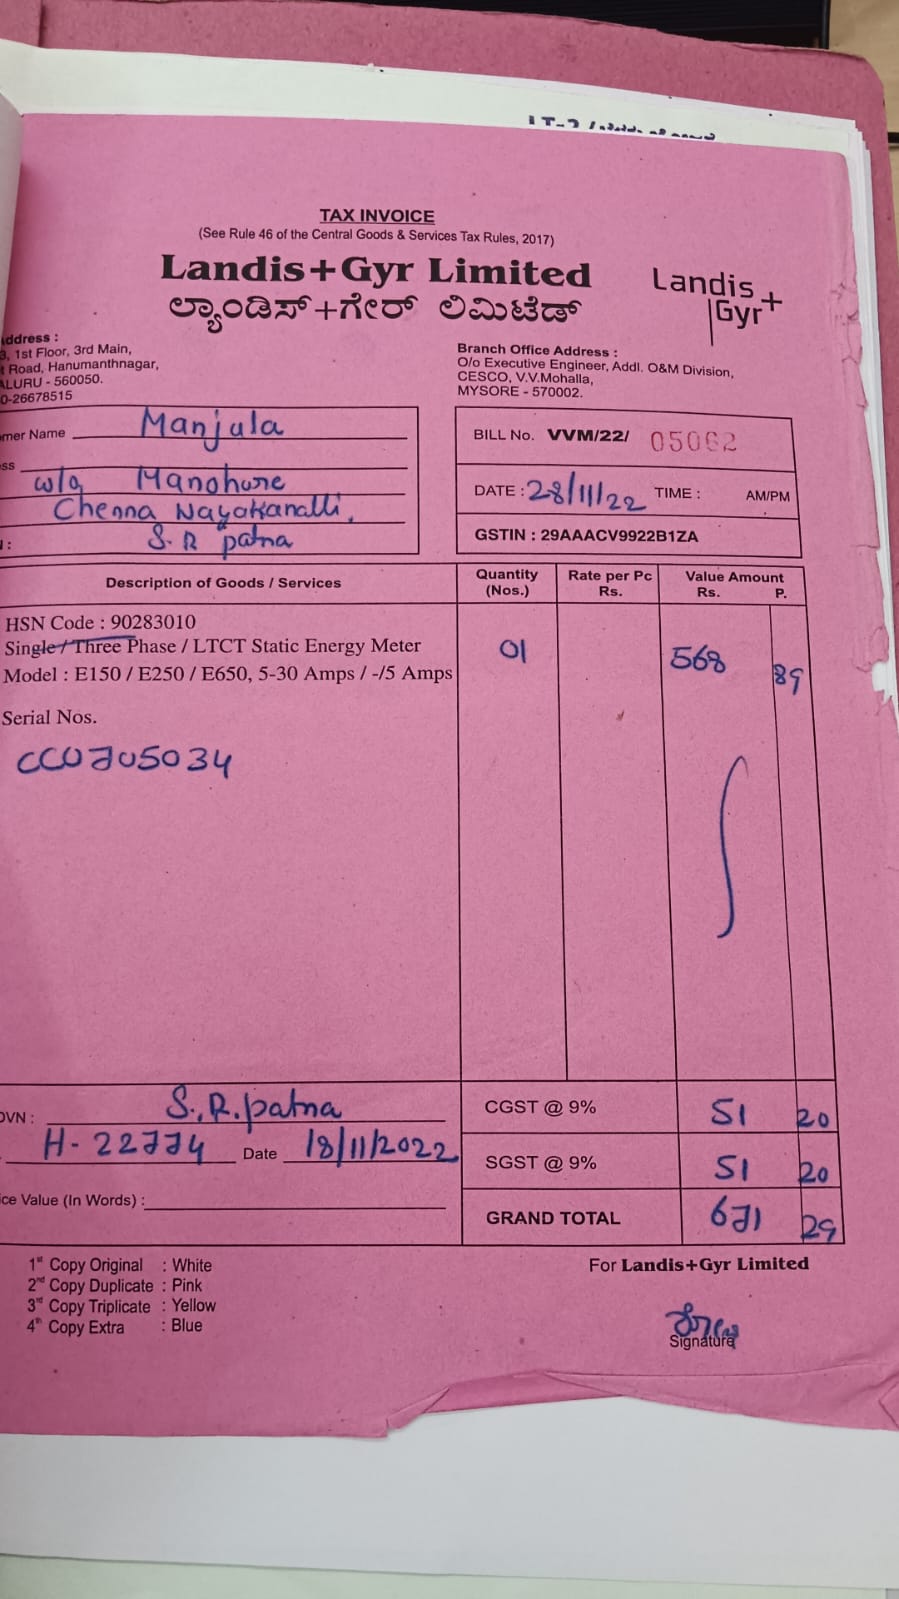 TAX INVOICE
(See Rule 46 of the Central Goods & Services Tax Rules, 2017)
Landis+Gyr Limited
ಲ್ಯಾಂಡಿಸ್+ಗೇರ್ ಲಿಮಿಟೆಡ್
Landis
Gyr+
Address :
3, 1st Floor, 3rd Main,
t Road, Hanumanthnagar,
ALURU - 560050.
0-26678515
Branch Office Address :
O/o Executive Engineer, Addl. O&M Division,
CESCO, V.V.Mohalla,
MYSORE - 570002.
omer Name Manjula
ess
w/o Manohore
Chenna Nayakanalli,
S. R patna
BILL No. VVM/22/ 05062
DATE : 28/11/22 TIME : AM/PM
GSTIN : 29AAACV9922B1ZA
Description of Goods / Services Quantity (Nos.) Rate per Pc Rs. Value Amount Rs. P.
HSN Code : 90283010
Single / Three Phase / LTCT Static Energy Meter 01 568 89
Model : E150 / E250 / E650, 5-30 Amps / -/5 Amps
Serial Nos.
CC0705034
OVN : S.R.patna
H-22774 Date 18/11/2022
ice Value (In Words) :
CGST @ 9% 51 20
SGST @ 9% 51 20
GRAND TOTAL 671 29
1st Copy Original : White
2nd Copy Duplicate : Pink
3rd Copy Triplicate : Yellow
4th Copy Extra : Blue
For Landis+Gyr Limited
Signature